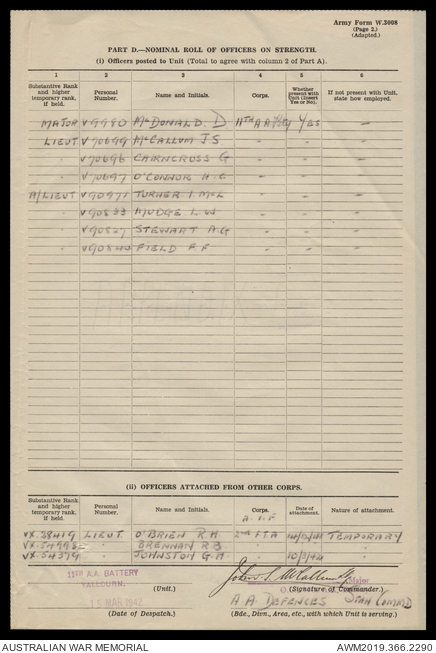 Army Form W.3008
(Page 2.)
(Adapted.)
PART D.—NOMINAL ROLL OF OFFICERS ON STRENGTH.
(i) Officers posted to Unit (Total to agree with column 2 of Part A).
1 2 3 4 5 6
Substantive Rank and higher temporary rank, if held. Personal Number. Name and Initials. Corps. Whether present with Unit (Insert Yes or No). If not present with Unit, state how employed.
MAJOR V9980 McDONALD. D 11TH A A Bty YES –
LIEUT V70699 McCALLUM J S – – –
" V70696 CAIRNCROSS G – – –
" V70697 O'CONNOR H.C – – –
A/LIEUT V90971 TURNER I. McL – – –
" V90533 MUDGE L W – – –
" STEWART A.G – – –
" FIELD F F – – –
(ii) OFFICERS ATTACHED FROM OTHER CORPS.
Substantive Rank and higher temporary rank, if held. Personal Number. Name and Initials. Corps. Date of attachment. Nature of attachment.
A.I.F
VX.38419 LIEUT. O'BRIEN R.H TEMPORARY
" BRENNAN R B " " "
VX.54379 " JOHNSTON G.H. " 10/3/42 "
11TH A.A. BATTERY
YALLOURN.
(Unit.)
15 MAR 1942
(Date of Despatch.)
John S. McCallum
Major
(Signature of Commander.)
A A DEFENCES
(Bde., Divn., Area, etc., with which Unit is serving.)
AUSTRALIAN WAR MEMORIAL
AWM2019.366.2290